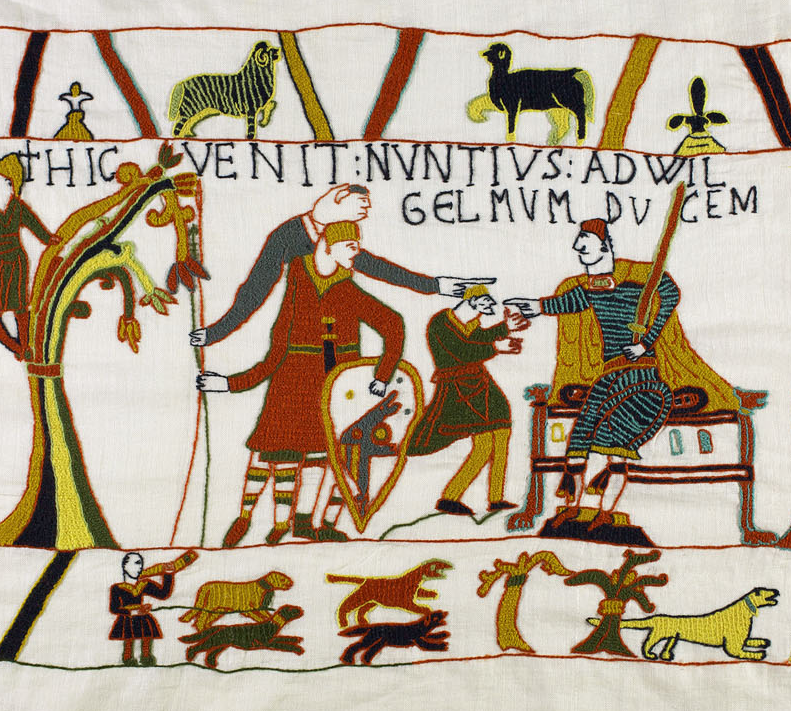 †HIC VENIT:NVNTIVS:AD WIL
GELMVM DVCEM